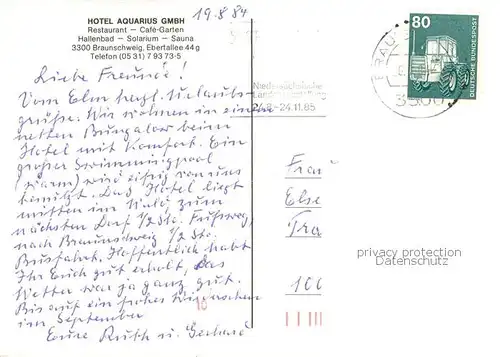 HOTEL AQUARIUS GMBH
Restaurant – Café-Garten
Hallenbad – Solarium – Sauna
3300 Braunschweig, Ebertallee 44g
Telefon (0531) 7 93 73-5
19.8.84
Liebe Freunde!
Vom Elm herzl. Urlaubs-
grüße. Wir wohnen in einem
netten Bungalow beim
Hotel mit Komfort. Ein
großer Swimmingpool
(warm) wird eifrig von uns
benützt. Das Hotel liegt
mitten im Wald zum
nächsten Dorf 1/2 Std. Fußweg,
nach Braunschweig 1/2 Std.
Busfahrt. Hoffentlich habt
Ihr Euch gut erholt, das
Wetter war ja ganz gut.
Bis auf ein frohes
im September
Eure Ruth u. Gerhard
Niedersächsische
24.8-24.11.85
BRAU
3300
80
DEUTSCHE BUNDESPOST
Frau
Else
Tra
100
privacy protection
Datenschutz
10